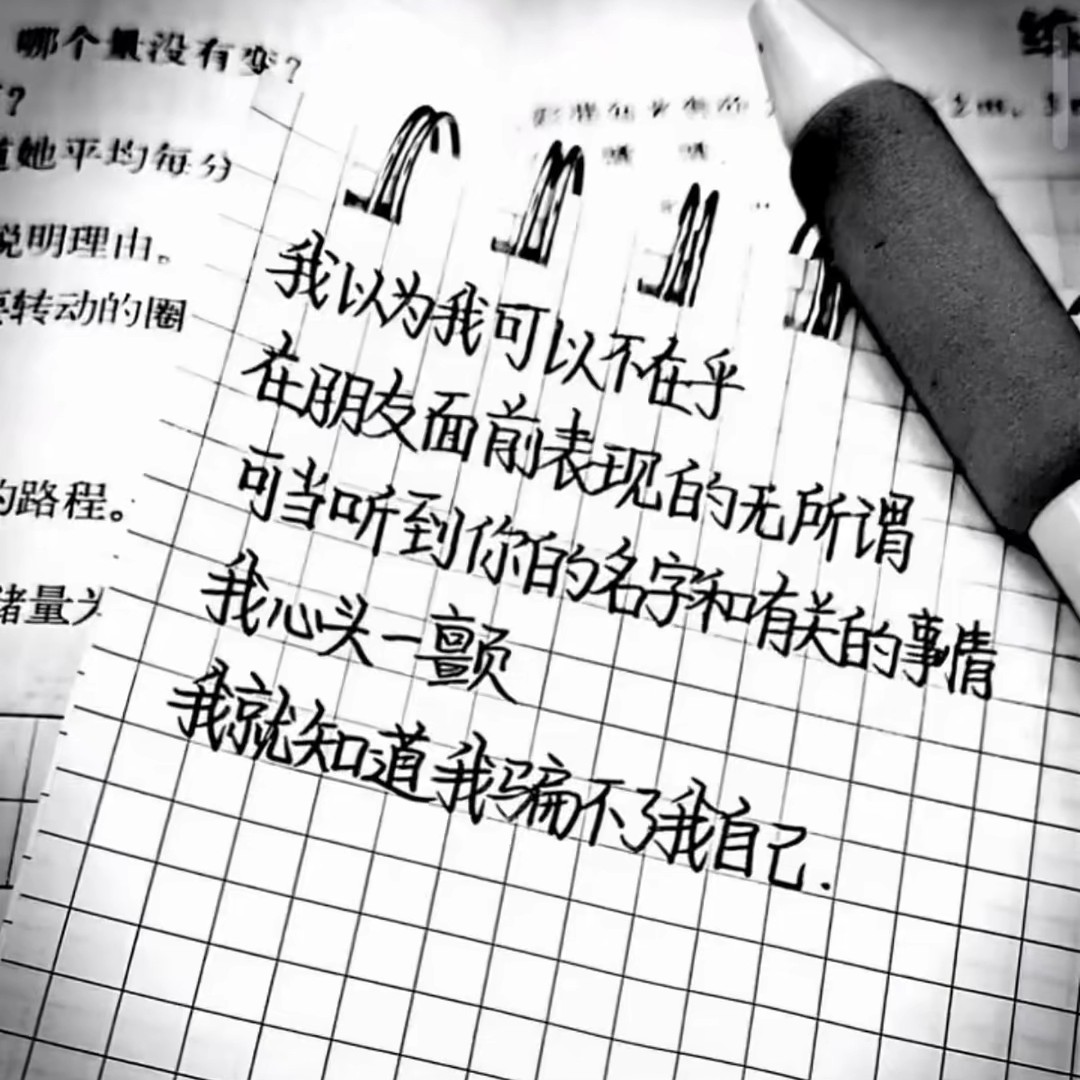 哪个量没有变？
？
她平均每分
说明理由。
转动的圈
的路程。
储量为
我以为我可以不在乎
在朋友面前表现的无所谓
可当听到你的名字和有关的事情
我心头一颤
我就知道我骗不了我自己.